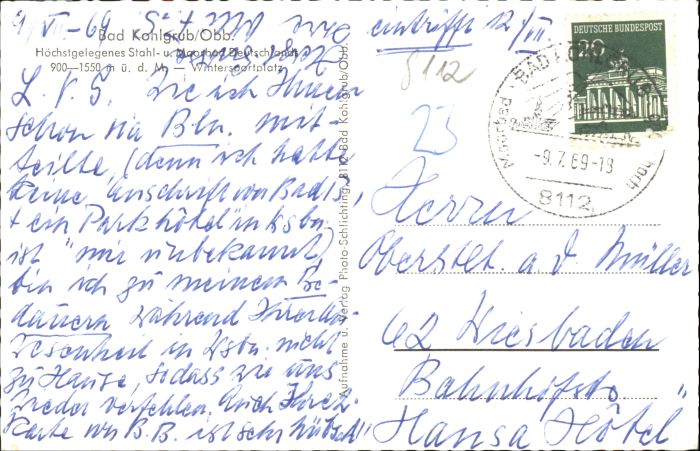 9/VII-69
Bad Kohlgrub/Obb.
Höchstgelegenes Stahl- u. Moorbad Deutschlands
900—1550 m ü. d. M. — Wintersportplatz
L. Wie ich Ihnen
schon via Bln. mit-
teilte, (denn ich hatte
keine Anschrift von Bad
+ ein Parkhotel in Wsbn.
ist mir unbekannt)
bin ich zu meinem Be-
dauern während Ihrer An-
wesenheit in Wsbn. nicht
zu Hause, sodass wir uns
wieder verfehlen. Auch Ihre
Karte von B.B. ist sehr hübsch
Aufnahme u. Verlag Photo-Schlichting, 8112 Bad Kohlgrub/Obb.
eintrifft 12/VII.
8112
23
DEUTSCHE BUNDESPOST
20
BAD KOHLGRUB
Moorbad
-9.7.69-18
8112
Herrn
Oberstlt. a. d. Müller
62 Wiesbaden
Bahnhofstr.
"Hansa Hotel"